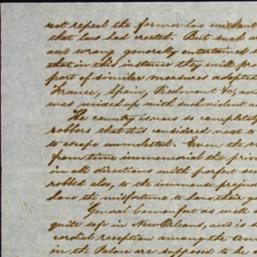 not repeal the former law without
that law had created. But such a
and wrong generally entertained
that in this instance they will pro
part of similar measures adopted
France, Spain, Piedmont &c, a
was mixed up with such violent a
The country is now so completely
robbers that it is considered next to
to escape unmolested. Even the
from time immemorial the priv
in all directions with perfect sec
robbed also, to the immense prejud
have the misfortune to have their g
General Comonfort as well a
quite safe in New Orleans, and is
cordial reception among the Am
in the Palace are supposed to be a